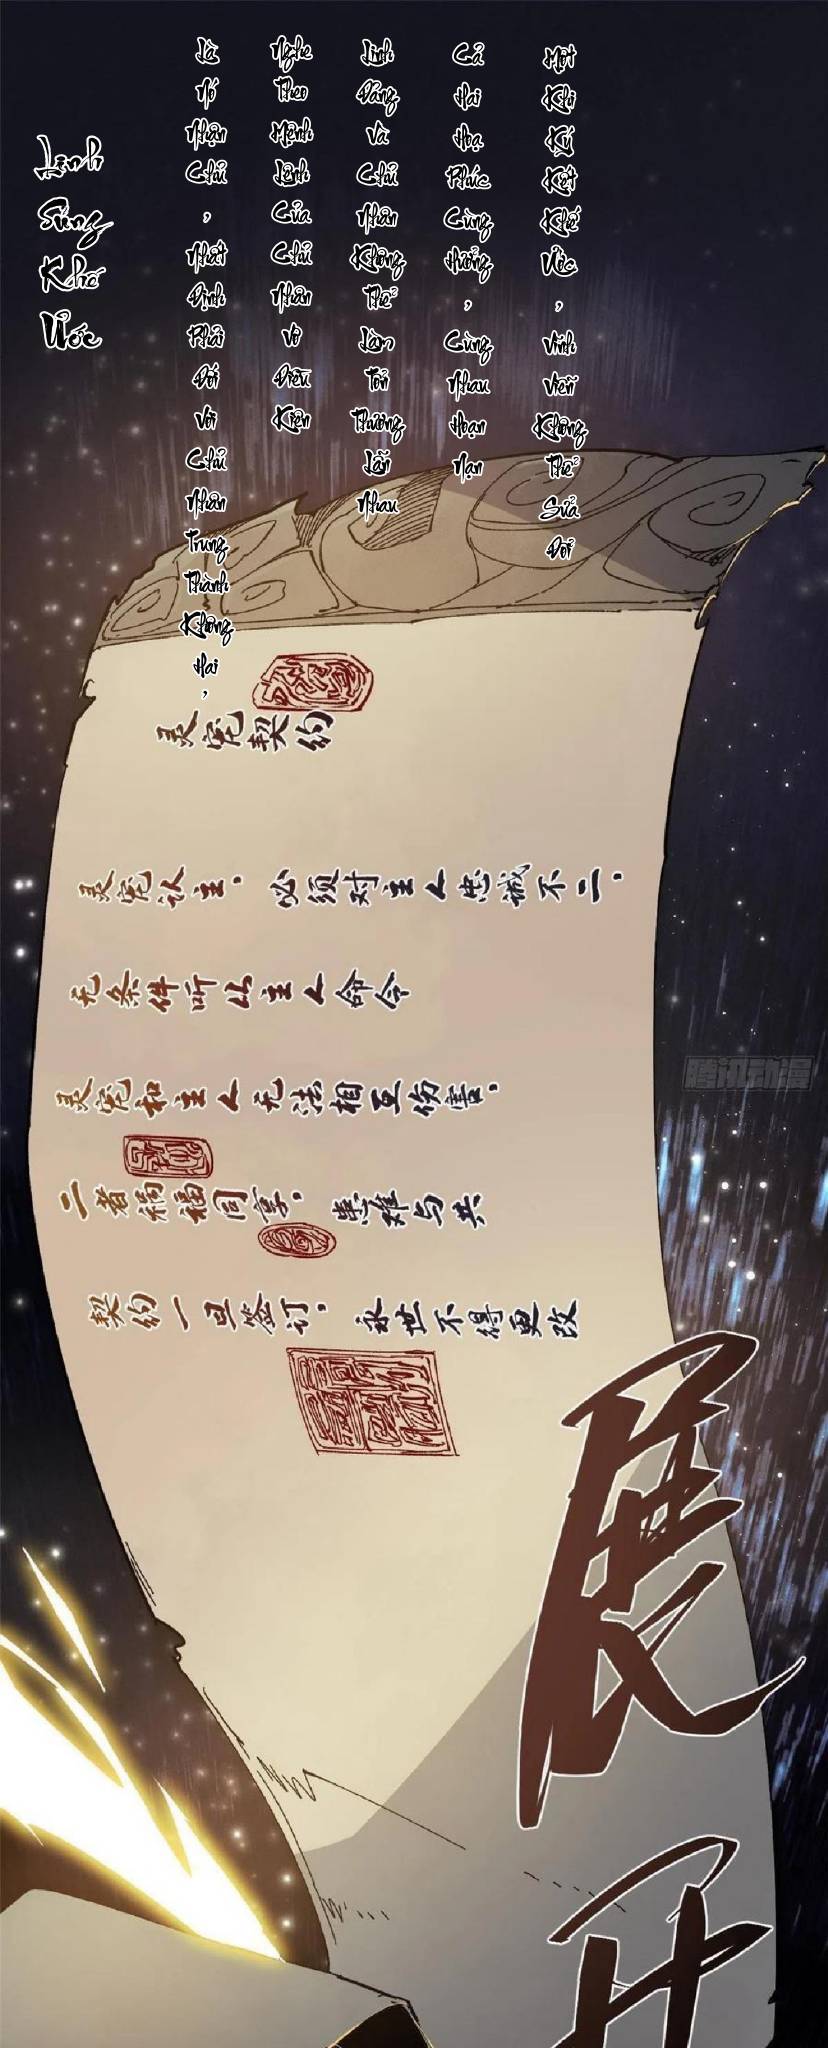 Linh Sủng Khế Ước
Là Nó Nhận Chủ, Nhất Định Phải Đối Với Chủ Nhân Trung Thành Không Hai,
Nghe Theo Mệnh Lệnh Của Chủ Nhân Vô Điều Kiện
Linh Đáng Và Chủ Nhân Không Thể Làm Tổn Thương Lẫn Nhau
Cả Hai Hoạ Phúc Cùng Hưởng, Cùng Nhau Hoạn Nạn
Một Khi Ký Kết Khế Ước, Vĩnh Viễn Không Thể Sửa Đổi
灵宠契约
灵宠认主，必须对主人忠诚不二，
无条件听从主人命令
灵宠和主人无法相互伤害，
二者祸福同享，患难与共
契约一旦签订，永世不得更改
腾讯动漫
展
开